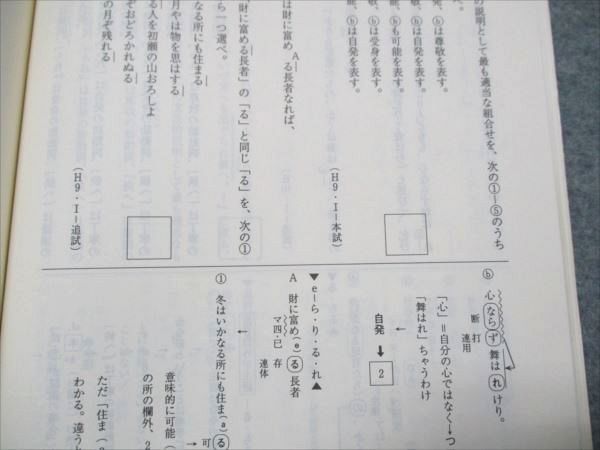 の説明として最も適当な組合せを、次の①―⑤のうち
べ。
発、ⓑは尊敬を表す。
能、ⓑは自発を表す。
能、ⓑも可能を表す。
敬、ⓑは自発を表す。
能、ⓑは受身を表す。
(H9・Ⅰ―本試)
は財に富め A る長者なれば、
財に富める長者」の「る」と同じ「る」を、次の①
ら一つ選べ。
なる所にも住まる
月やは物を思はする
る人を初瀬の山おろしよ
ぞおどろかれぬる
の月ぞ残れる
(H9・Ⅰ―追試)
ⓑ 心ならず舞はれけり。
断 打
連用
「心」=自分の心ではなく→つ
「舞はれ」ちゃうわけ
自発 → 2
▼e―ら・り・る・れ▲
A 財に富め(e)る長者
マ四・已 存
連体
① 冬はいかなる所にも住ま(a)る
可
意味的に可能(
の所の欄外、2
ただ「住ま(a
わかる。違うと